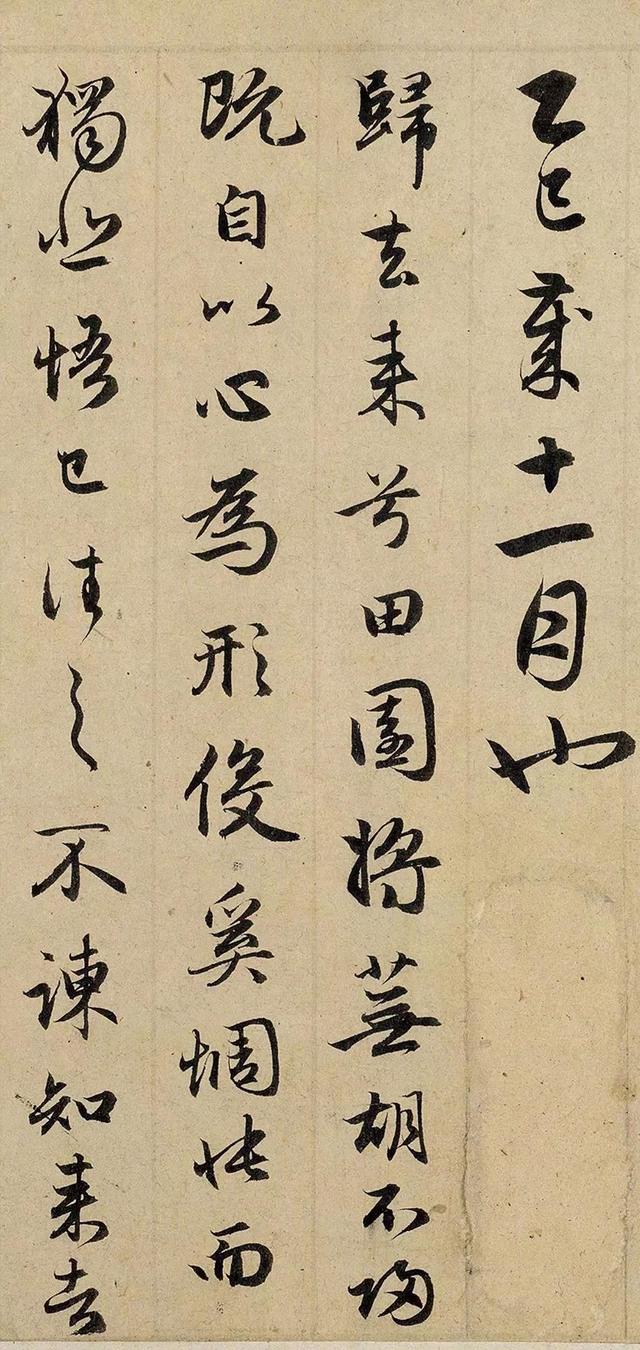 乙巳歲十一月也
歸去来兮田園將蕪胡不歸
既自以心為形役奚惆悵而
獨悲悟已往之不諫知来者